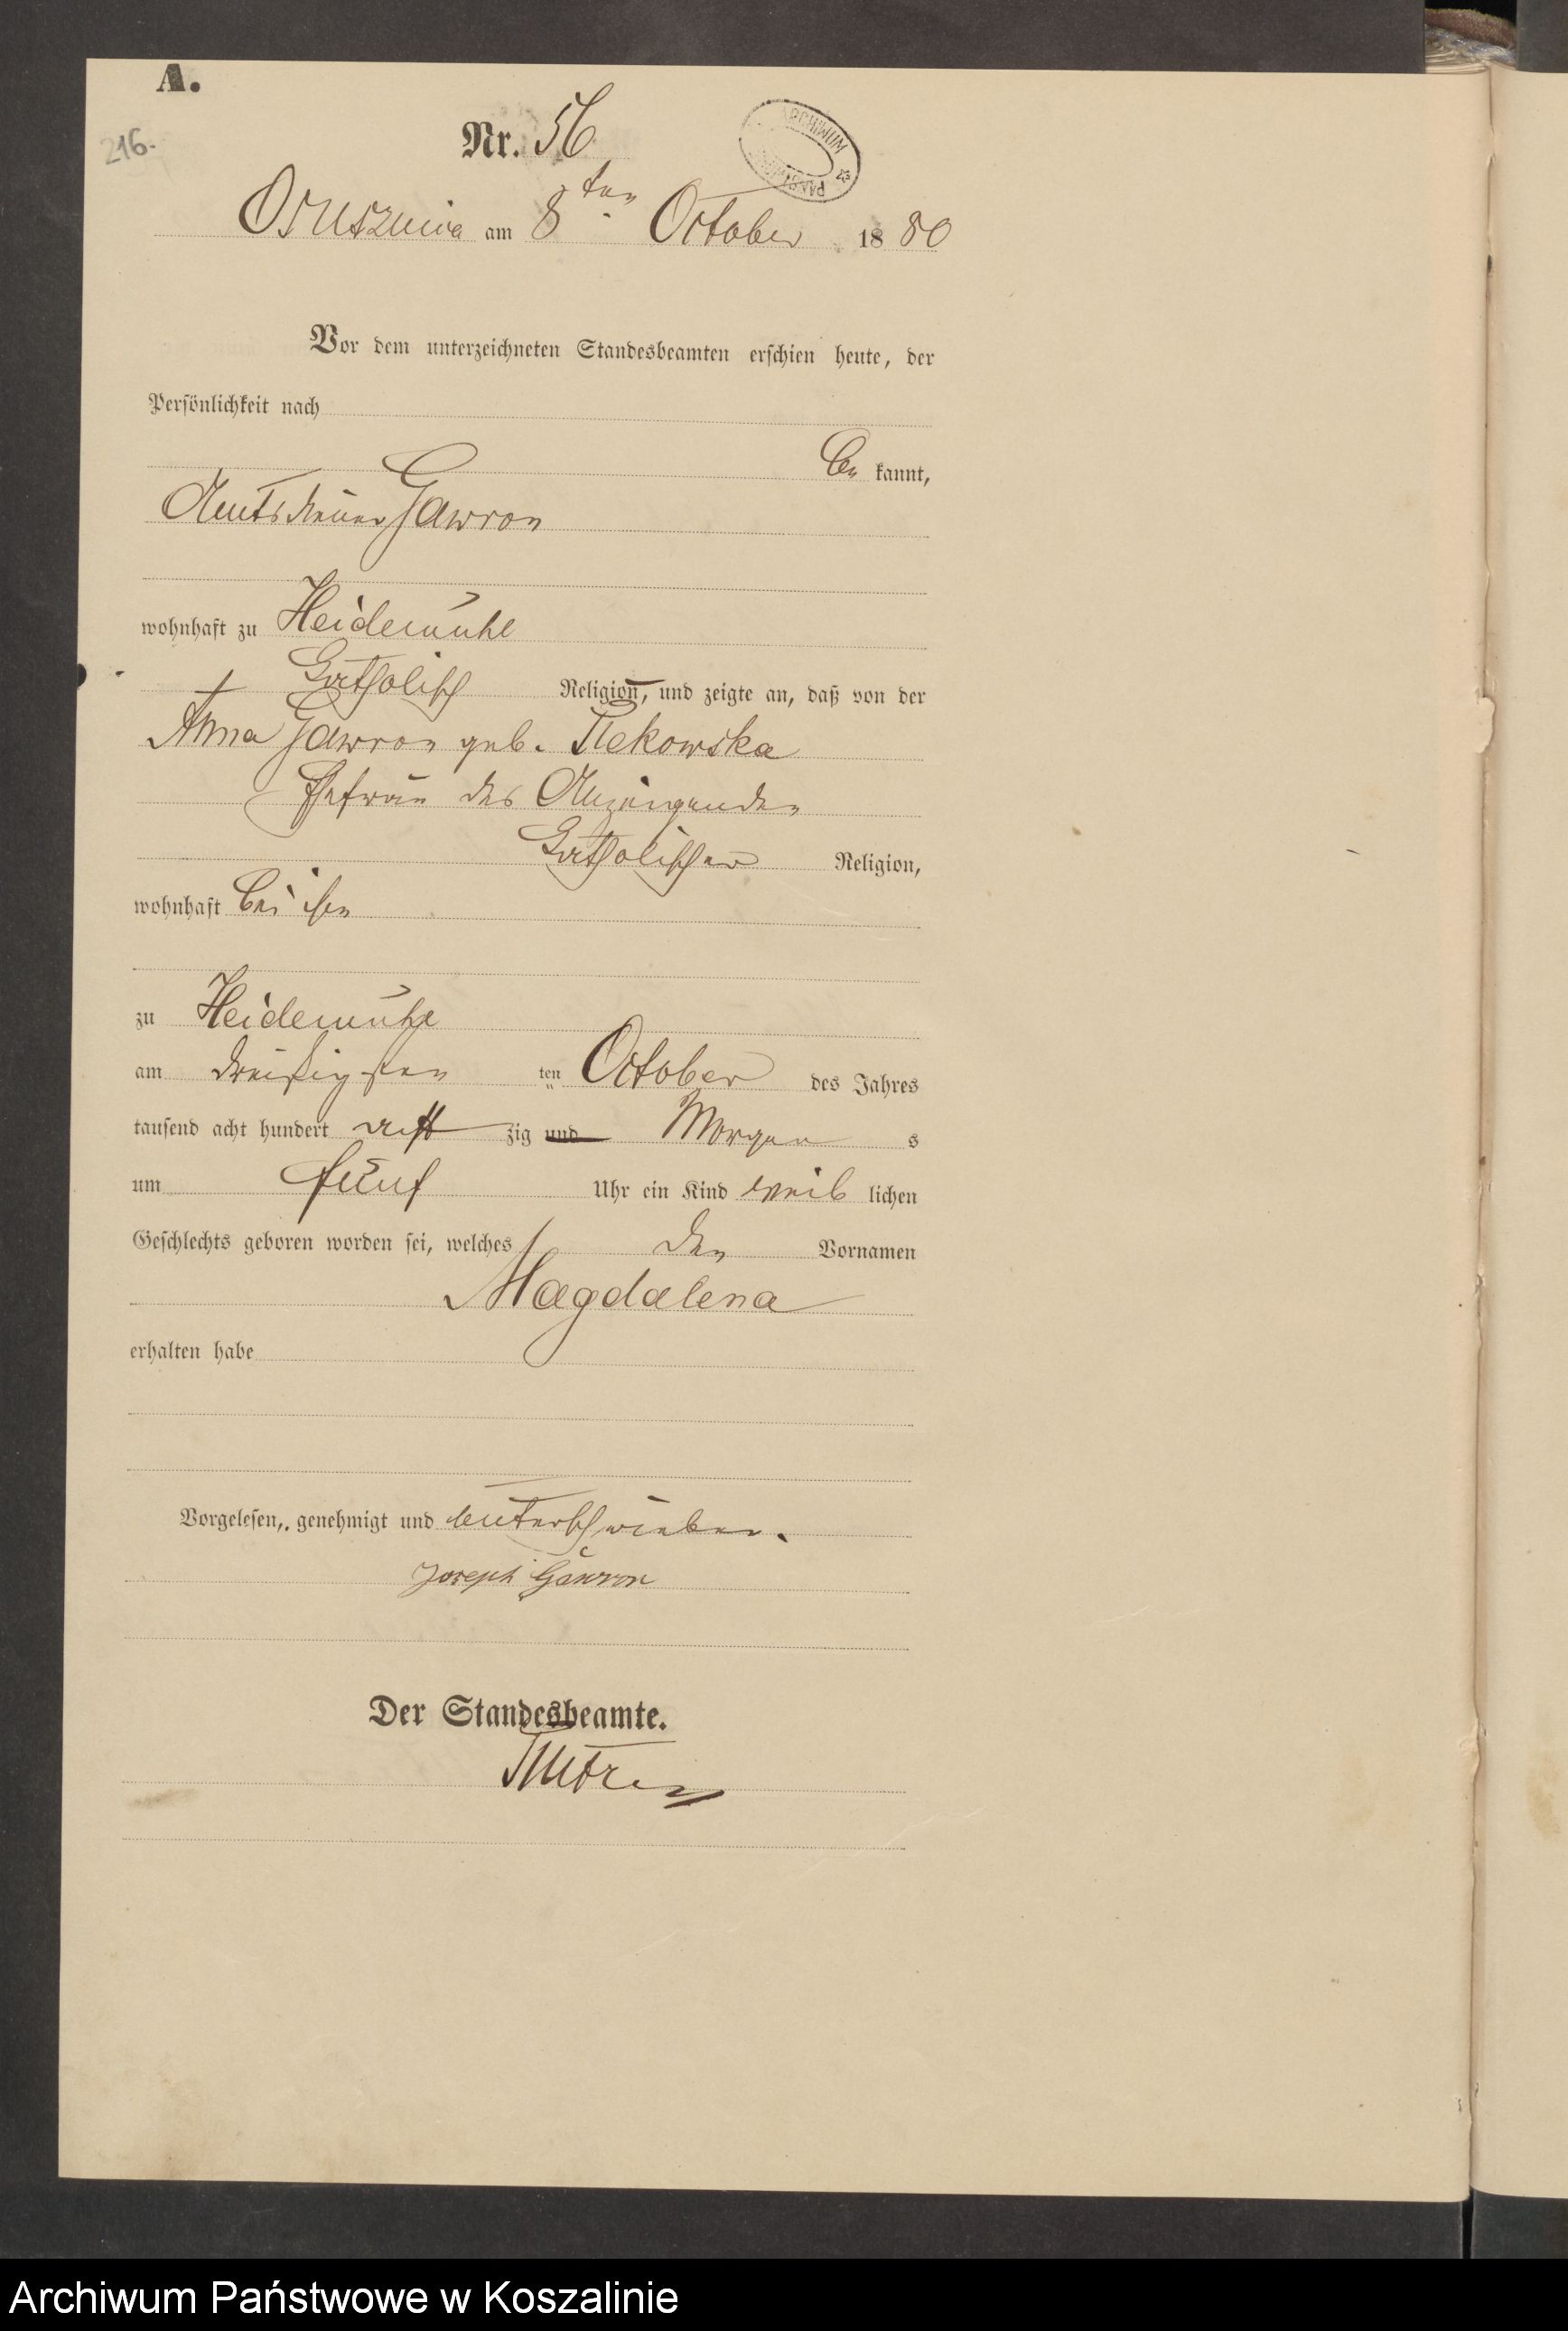 A.
216.
Nr. 56
ARCHIWUM
Osuszniza am 8ten October 1880
Vor dem unterzeichneten Standesbeamten erschien heute, der
Persönlichkeit nach
be kannt,
Amtsdiener Gawron
wohnhaft zu Heidemühl
katholisch Religion, und zeigte an, daß von der
Anna Gawron geb. Piekowska
Ehefrau des Anzeigenden
katholischer Religion,
wohnhaft bei ihm
zu Heidemühl
am dreißigsten ten October des Jahres
tausend acht hundert acht zig und Morgen s
um fünf Uhr ein Kind weib lichen
Geschlechts geboren worden sei, welches den Vornamen
Magdalena
erhalten habe
Vorgelesen, genehmigt und unterschrieben.
Joseph Gawron
Der Standesbeamte.
Archiwum Państwowe w Koszalinie